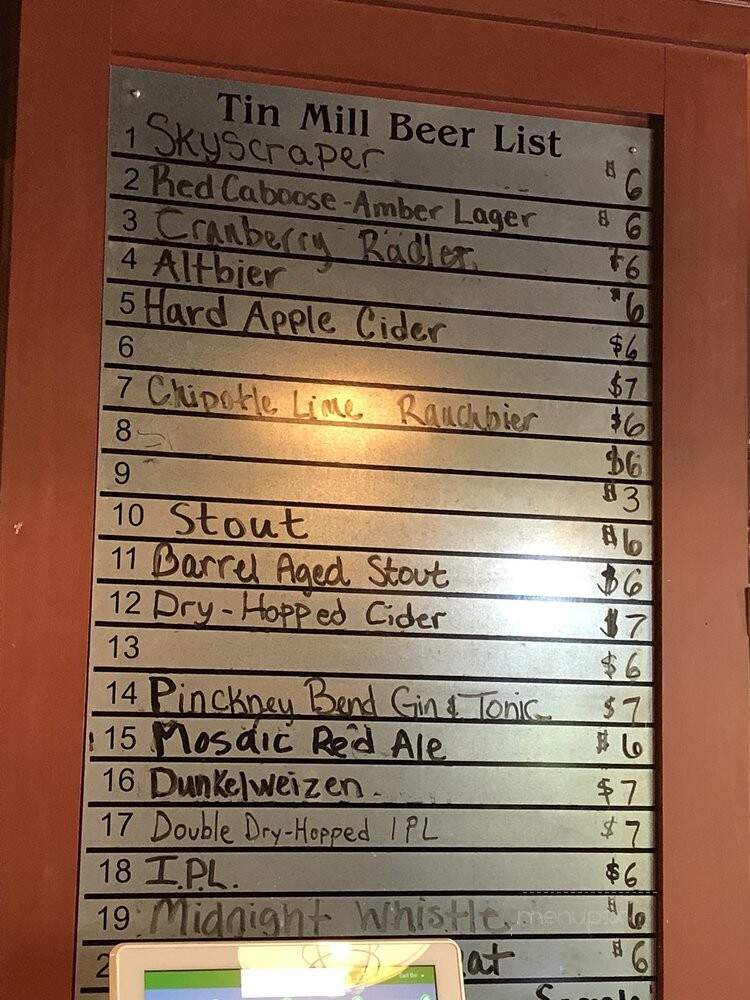 Tin Mill Beer List
1 Skyscraper $6
2 Red Caboose-Amber Lager $6
3 Cranberry Radler $6
4 Altbier $6
5 Hard Apple Cider $6
6 $7
7 Chipotle Lime Rauchbier $6
8 $6
9 $3
10 Stout $6
11 Barrel Aged Stout $6
12 Dry-Hopped Cider $7
13 $6
14 Pinckney Bend Gin & Tonic $7
15 Mosaic Red Ale $6
16 Dunkelweizen $7
17 Double Dry-Hopped IPL $7
18 I.P.L. $6
19 Midnight Whistle $6
2 at $6